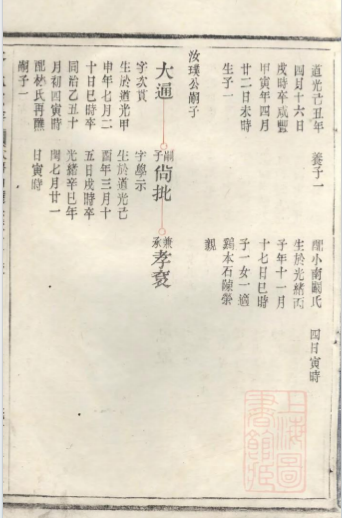 道光己丑年
四月十六日
戌時卒咸豐
甲寅年四月
廿二日未時
生子一
養子一
配小南劉氏
四日寅時
生於光緒丙
子年十一月
十七日巳時
子一女一適
鷄本石陳榮
親
汝璞公嗣子
大通
字次貫
生於道光甲
申年七月二
十日巳時卒
同治乙丑十
月初四寅時
配林氏再醮
嗣子一
嗣子
尙批
字學示
生於道光己
酉年三月十
五日戌時卒
光緒辛巳年
閏七月廿一
日寅時
兼承
孝
上海圖書館藏